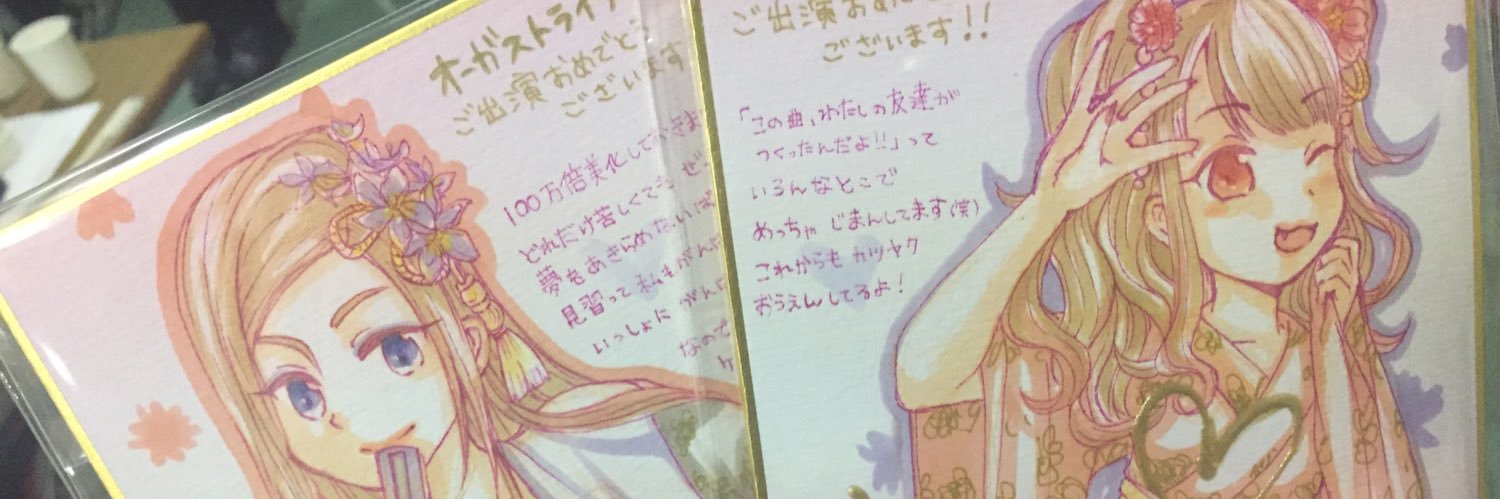 オーガストライブ
ご出演おめでとう
ございます
100万倍美化して
どれだけ苦しくても
夢をあきらめない
見習って私もがんば
いっしょに がんば
なので
ご出演おめでとう
ございます!!
「この曲、わたしの友達が
つくったんだよ!!」って
いろんなとこで
めっちゃ じまんしてます(笑)
これからも カツヤク
おうえんしてるよ!